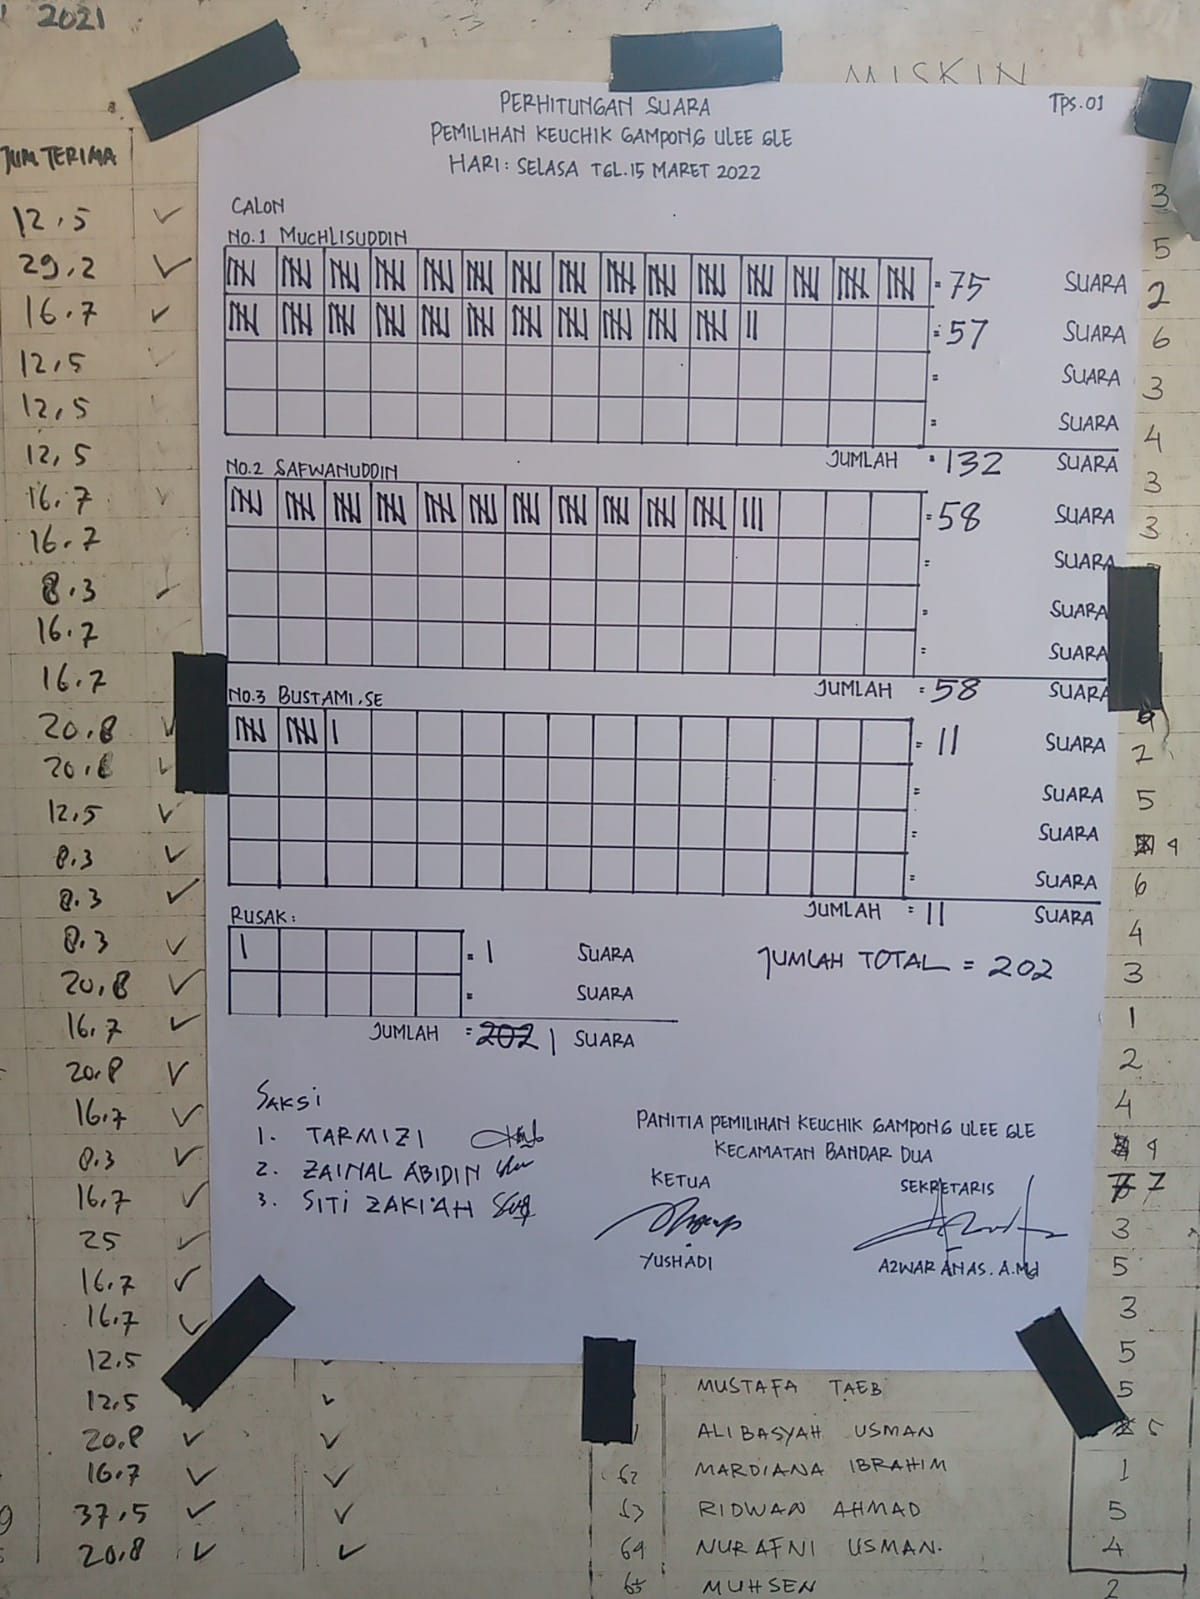 2021
MISKIN
JUM TERIMA
12.5
29.2
16.7
12.5
12.5
12.5
16.7
16.7
8.3
16.7
16.7
20.8
20.8
12.5
8.3
8.3
8.3
20.8
16.7
20.8
16.7
8.3
16.7
25
16.7
16.7
12.5
12.5
20.8
16.7
37.5
20.8
PERHITUNGAN SUARA
TPS.01
PEMILIHAN KEUCHIK GAMPONG ULEE GLE
HARI: SELASA TGL.15 MARET 2022
CALON
NO.1 MUCHLISUDDIN
= 75 SUARA
= 57 SUARA
= SUARA
= SUARA
JUMLAH = 132 SUARA
NO.2 SAFWANUDDIN
= 58 SUARA
= SUARA
= SUARA
= SUARA
JUMLAH = 58 SUARA
NO.3 BUSTAMI.SE
= 11 SUARA
= SUARA
= SUARA
= SUARA
JUMLAH = 11 SUARA
RUSAK:
= 1 SUARA
= SUARA
JUMLAH = 202 1 SUARA
JUMLAH TOTAL = 202
SAKSI
1. TARMIZI
2. ZAINAL ABIDIN
3. SITI ZAKIAH
PANITIA PEMILIHAN KEUCHIK GAMPONG ULEE GLE
KECAMATAN BANDAR DUA
KETUA
YUSHADI
SEKRETARIS
AZWAR ANAS. A.Md
3
5
2
6
3
4
3
3
2
5
4
6
4
3
1
2
4
4
7 7
3
5
3
5
MUSTAFA TAEB 5
ALIBASYAH USMAN 5
62 MARDIANA IBRAHIM 1
63 RIDWAN AHMAD 5
64 NURAFNI USMAN. 4
65 MUHSEN 2